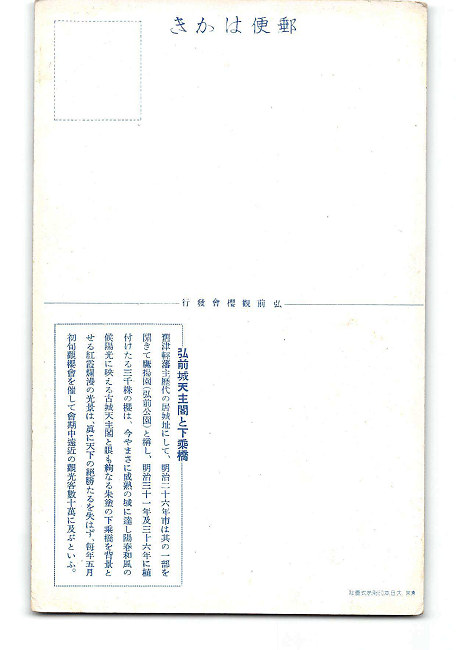 郵便はかき
弘前觀櫻會發行
弘前城天主閣と下乘橋
舊津輕藩主歷代の居城址にして、明治二十六年市は其の一部を
開きて鷹揚園(弘前公園)と稱し、明治三十一年及三十六年に植
付けたる三千株の櫻は、今やまさに成熟の域に達し陽春和風の
候陽光に映える古城天主閣と眼も絢なる朱塗の下乘橋を背景と
せる紅霞爛漫の光景は、眞に天下の絕勝たるを失はず、每年五月
初旬觀櫻會を催して會期中遠近の觀光客數十萬に及ぶといふ。